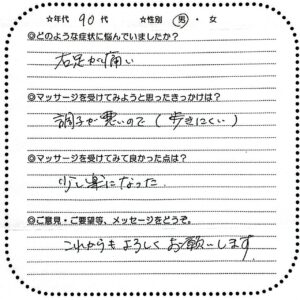 ☆年代 90 代 ☆性別 男 ・ 女
◎どのような症状に悩んでいましたか?
右足が痛い
◎マッサージを受けてみようと思ったきっかけは?
調子が悪いので(歩きにくい)
◎マッサージを受けてみて良かった点は?
少し楽になった
◎ご意見・ご要望等、メッセージをどうぞ。
これからもよろしくお願いします